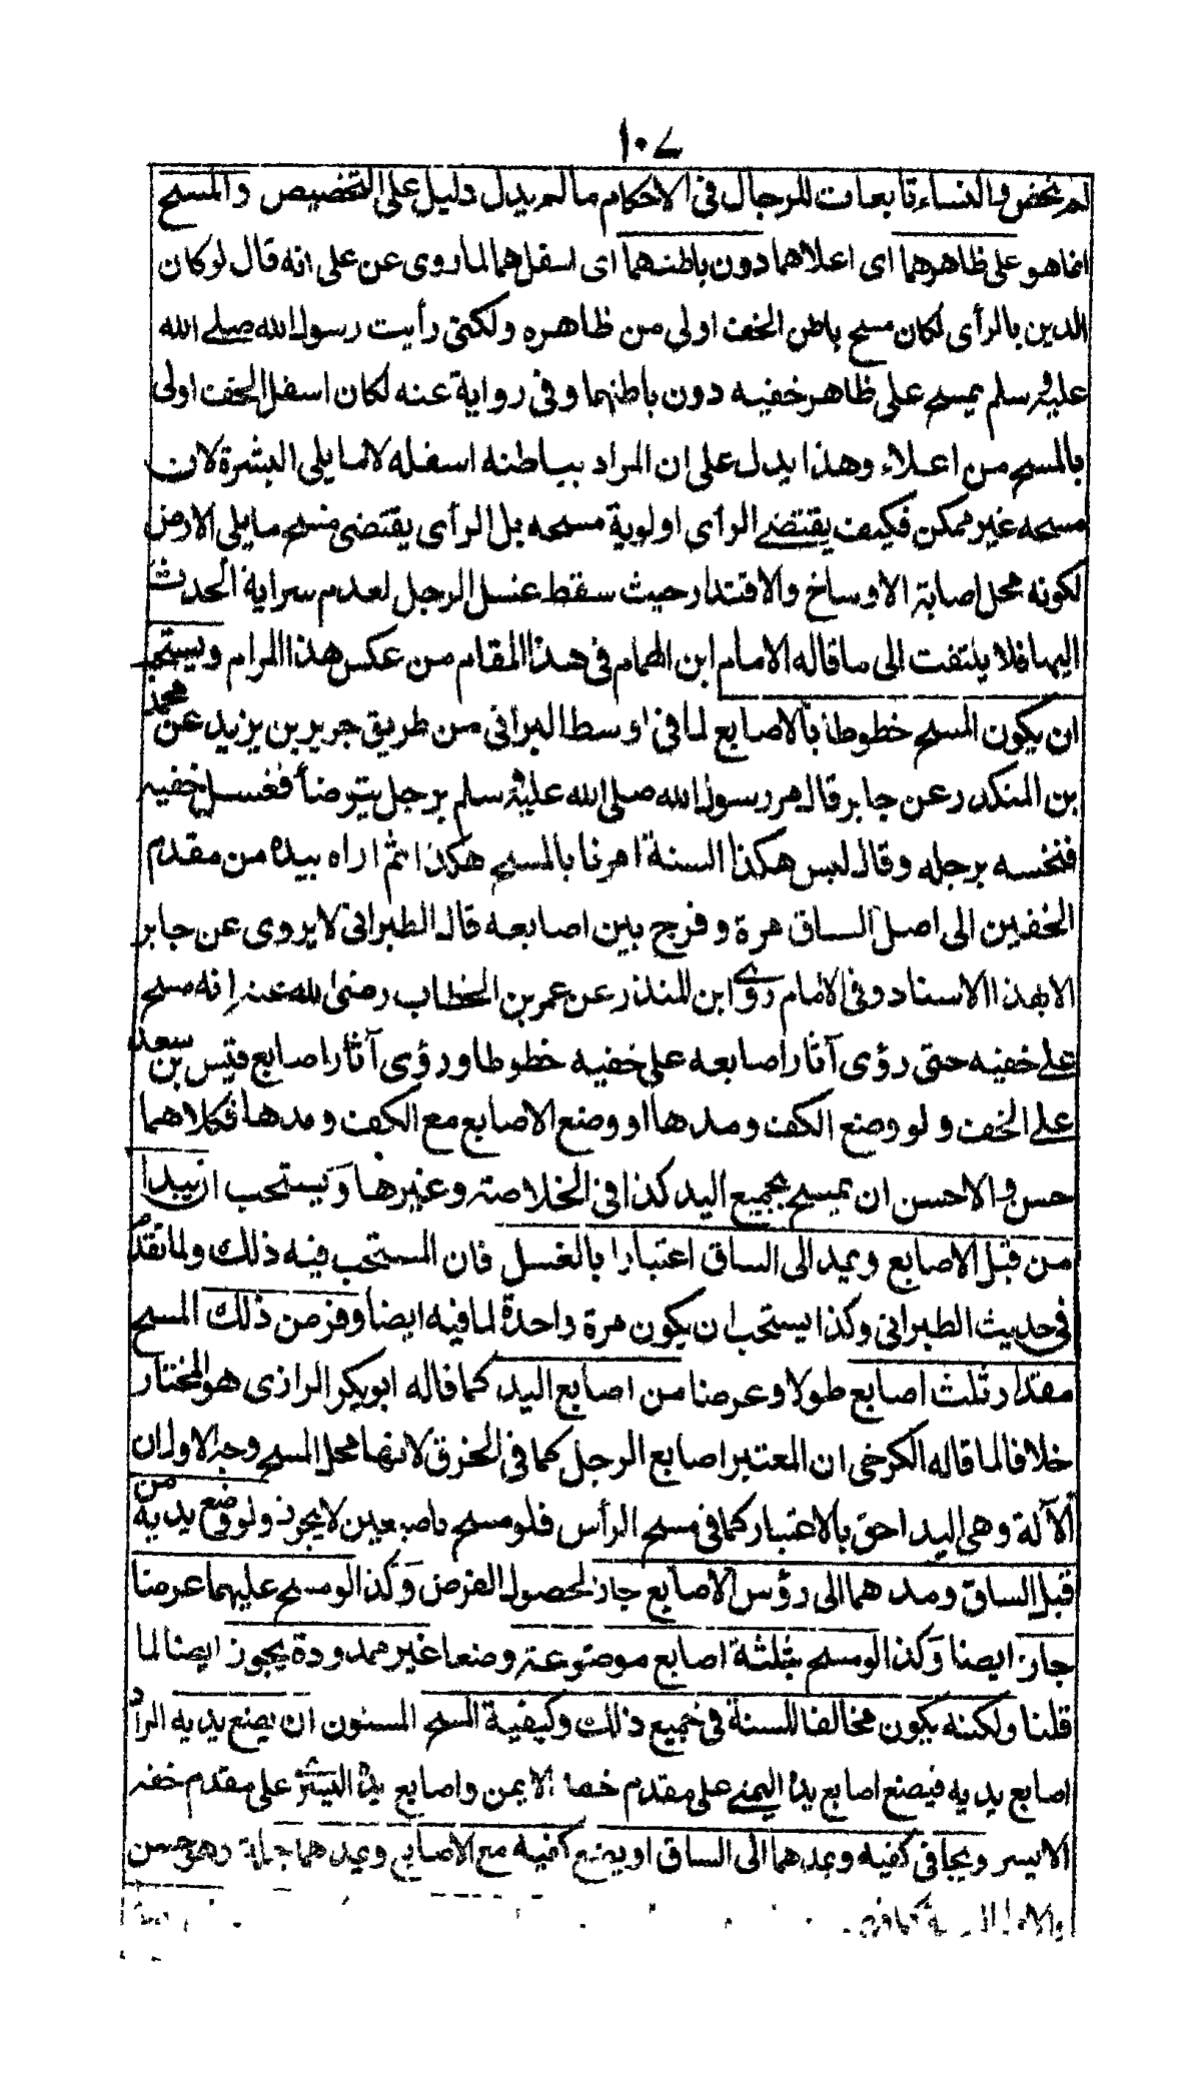 ١٠٧
لم يخص والنساء تابعات للرجال فى الاحكام ما لم يدل دليل على التخصيص والمسح
انما هو على ظاهرهما اى اعلاهما دون باطنهما اى اسفلهما لما روى عن على انه قال لو كان
الدين بالرأى لكان مسح باطن الخف اولى من ظاهره ولكنى رأيت رسول الله صلى الله
عليه وسلم يمسح على ظاهر خفيه دون باطنهما وفى رواية عنه لكان اسفل الخف اولى
بالمسح من اعلاه وهذا يدل على ان المراد بباطنه اسفله لا ما يلى البشرة لان
مسحه غير ممكن فكيف يقتضى الرأى اولوية مسحه بل الرأى يقتضى مسح ما يلى الارض
لكونه محل اصابة الاوساخ والاقتذار حيث سقط غسل الرجل لعدم سراية الحدث
اليها فلا يلتفت الى ما قاله الامام ابن الهمام فى هذا المقام من عكس هذا المرام ويستحب
ان يكون المسح خطوطا بالاصابع لما فى اوسط البرانى من طريق جرير بن يزيد عن محمد
بن المنكدر عن جابر قال مر رسول الله صلى الله عليه وسلم برجل يتوضأ فغسل خفيه
فنخسه برجله وقال ليس هكذا السنة امرنا بالمسح هكذا ثم اراه بيده من مقدم
الخفين الى اصل الساق مرة وفرج بين اصابعه قال الطبرانى لا يروى عن جابر
الا بهذا الاسناد وفى الامام روى ابن المنذر عن عمر بن الخطاب رضى الله عنه انه مسح
على خفيه حتى رؤى آثار اصابعه على خفيه خطوطا ورؤى آثار اصابع قيس بن سعد
على الخف ولو وضع الكف ومدها او وضع الاصابع مع الكف ومدها فكلاهما
حسن والاحسن ان يمسح بجميع اليد كذا فى الخلاصة وغيرها ويستحب ان يبدا
من قبل الاصابع ويمد الى الساق اعتبارا بالغسل فان المستحب فيه ذلك ولما تقدم
فى حديث الطبرانى وكذا يستحب ان يكون مرة واحدة لما فيه ايضا وفرض ذلك المسح
مقدار ثلث اصابع طولا وعرضا من اصابع اليد كما قاله ابو بكر الرازى هو المختار
خلافا لما قاله الكرخى ان المعتبر اصابع الرجل كما فى الخرق لانها محل المسح وجه الاول ان
الآلة وهى اليد احق بالاعتبار كما فى مسح الرأس فلو مسح باصبعين لا يجوز ولو وضع يديه من
قبل الساق ومدهما الى رؤس الاصابع جاز لحصول الفرض وكذا لو مسح عليهما عرضا
جاز ايضا وكذا لو مسح بثلثة اصابع موضوعة وضعا غير ممدودة يجوز ايضا لما
قلنا ولكنه يكون مخالفا للسنة فى جميع ذلك وكيفية المسح المسنون ان يضع يديه اراد
اصابع يديه فيضع اصابع يده اليمنى على مقدم خفه الايمن واصابع يده اليسرى على مقدم خفه
الايسر ويجافى كفيه ويمدهما الى الساق او يضع كفيه مع الاصابع ويمدهما جملة وهو حسن